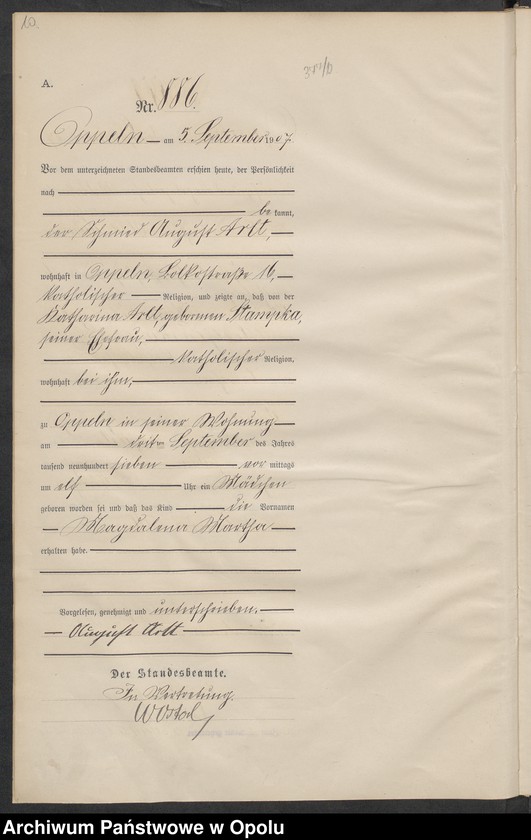 10.
A.
Nr. 886.
Oppeln am 5. September 1907.
Vor dem unterzeichneten Standesbeamten erschien heute, der Persönlichkeit
nach
be kannt,
der Schmied August Arlt,
wohnhaft in Oppeln, Bolkostraße 16,
katholischer Religion, und zeigte an, daß von der
Katharina Arlt, geborenen Stampka,
seiner Ehefrau,
katholischer Religion,
wohnhaft bei ihm,
zu Oppeln in seiner Wohnung
am dritten September des Jahres
tausend neunhundert sieben vor mittags
um elf Uhr ein Mädchen
geboren worden sei und daß das Kind die Vornamen
Magdalena Martha
erhalten habe.
Vorgelesen, genehmigt und unterschrieben.
August Arlt
Der Standesbeamte.
In Vertretung.
Archiwum Państwowe w Opolu